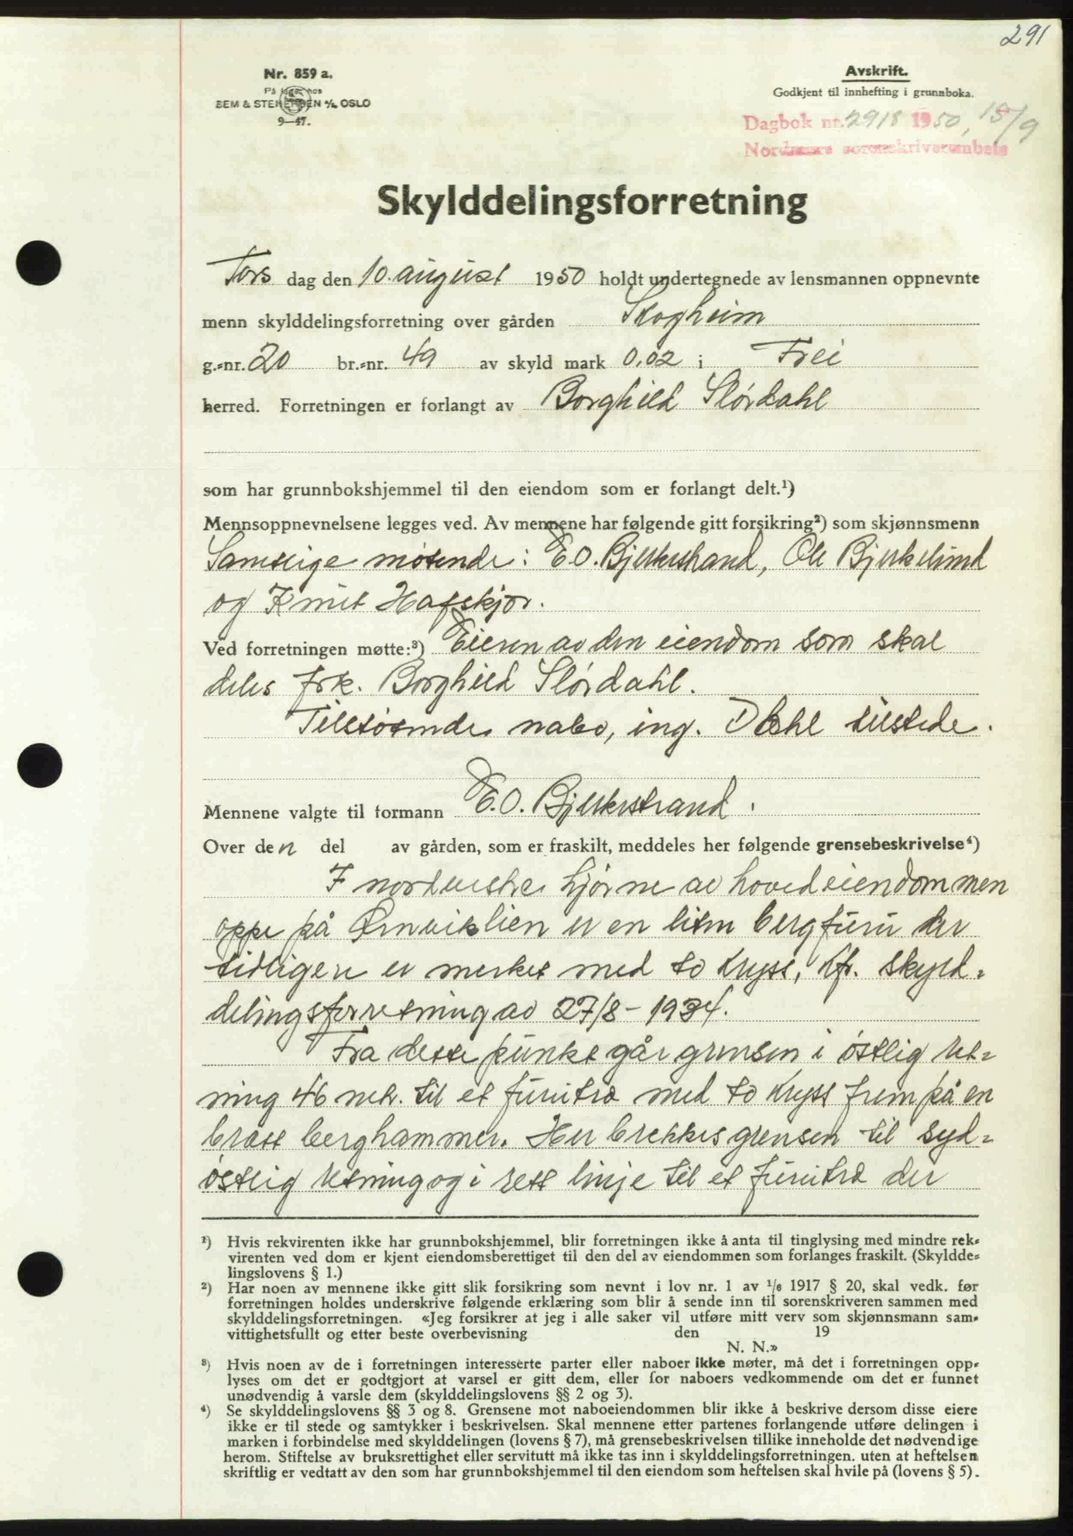 291
Nr. 859 a.
På lager hos
SEM & STENERSEN A/S, OSLO
9—47.
Avskrift.
Godkjent til innhefting i grunnboka.
Dagbok nr. 2918 1950, 18/9
Nordmøre sorenskriverembete
Skylddelingsforretning
Tors dag den 10. august 1950 holdt undertegnede av lensmannen oppnevnte
menn skylddelingsforretning over gården Skogheim
g.-nr. 20 br.-nr. 49 av skyld mark 0,02 i Frei
herred. Forretningen er forlangt av Borghild Slørdahl
som har grunnbokshjemmel til den eiendom som er forlangt delt.¹)
Mennsoppnevnelsene legges ved. Av mennene har følgende gitt forsikring²) som skjønnsmenn
Samtlige møtende: E.O. Bjerkestrand, Ole Bjerkelund
og Knut Hafskjær.
Ved forretningen møtte:³) Eieren av den eiendom som skal
deles frk. Borghild Slørdahl.
Tilstøtende nabo, ing. Dahl tilstede.
Mennene valgte til formann E.O. Bjerkestrand.
Over den del av gården, som er fraskilt, meddeles her følgende grensebeskrivelse⁴)
I nordvestre hjørne av hovedeiendommen
oppe på Ørnviklien er en liten bergfuru der
tidligere er merket med to kryss, kfr. skyld-
delingsforretning av 27/8-1934.
Fra dette punkt går grensen i østlig ret-
ning 46 mtr. til et furutre med to kryss frem på en
bratt berghammer. Her brekkes grensen til syd-
østlig retning og i rett linje til et furutre der
¹) Hvis rekvirenten ikke har grunnbokshjemmel, blir forretningen ikke å anta til tinglysing med mindre rek-
virenten ved dom er kjent eiendomsberettiget til den del av eiendommen som forlanges fraskilt. (Skyldde-
lingslovens § 1.)
²) Har noen av mennene ikke gitt slik forsikring som nevnt i lov nr. 1 av 1/6 1917 § 20, skal vedk. før
forretningen holdes underskrive følgende erklæring som blir å sende inn til sorenskriveren sammen med
skylddelingsforretningen. «Jeg forsikrer at jeg i alle saker vil utføre mitt verv som skjønnsmann sam-
vittighetsfullt og etter beste overbevisning den 19
N. N.»
³) Hvis noen av de i forretningen interesserte parter eller naboer ikke møter, må det i forretningen opp-
lyses om det er godtgjort at varsel er gitt dem, eller for naboers vedkommende om det er funnet
unødvendig å varsle dem (skylddelingslovens §§ 2 og 3).
⁴) Se skylddelingslovens §§ 3 og 8. Grensene mot naboeiendommen blir ikke å beskrive dersom disse eiere
ikke er til stede og samtykker i beskrivelsen. Skal mennene etter partenes forlangende utføre delingen i
marken i forbindelse med skylddelingen (lovens § 7), må grensebeskrivelsen tillike inneholde det nødvendige
herom. Stiftelse av bruksrettighet eller servitutt må ikke tas inn i skylddelingsforretningen. uten at heftelsen
skriftlig er vedtatt av den som har grunnbokshjemmel til den eiendom som heftelsen skal hvile på (lovens § 5).